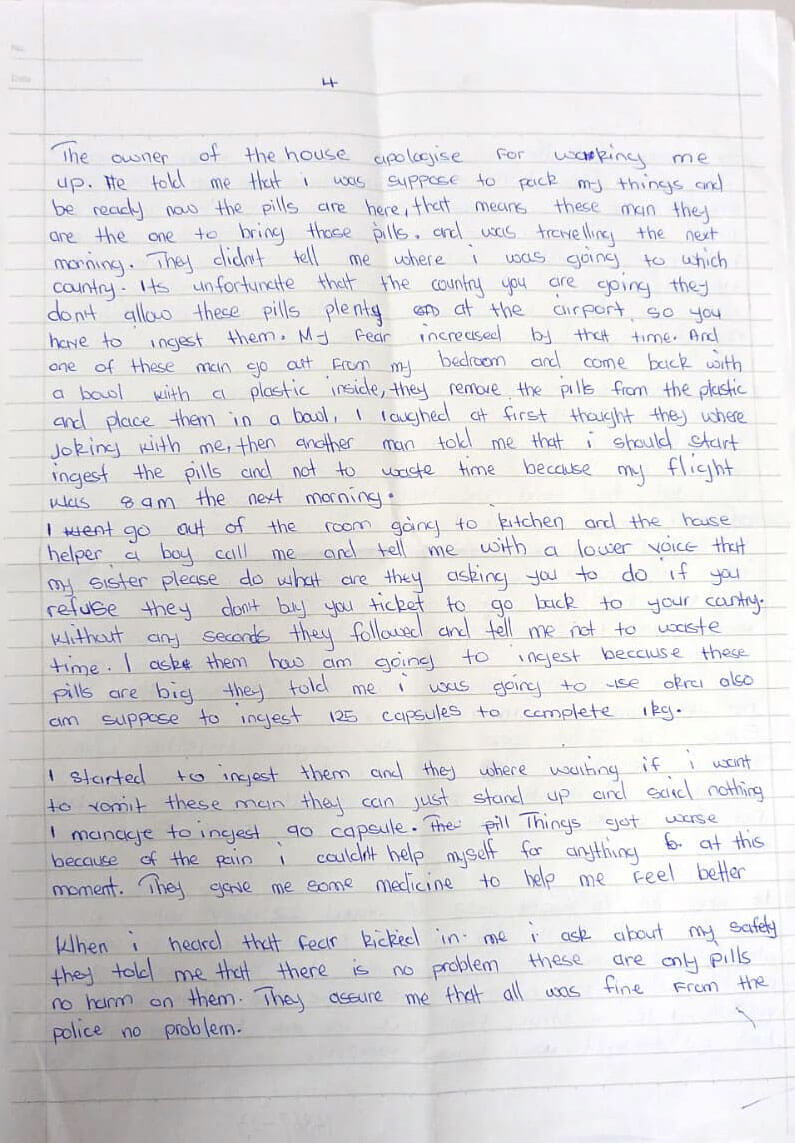 No.
Date
4
The owner of the house apologise for working me
up. He told me that i was suppose to pack my things and
be ready now the pills are here, that means these man they
are the one to bring those pills. and was travelling the next
morning. They didn't tell me where i was going to which
country. Its unfortunate that the country you are going they
don't allow these pills plenty at the airport, so you
have to ingest them. My fear increased by that time. And
one of these man go out from my bedroom and come back with
a bowl with a plastic inside, they remove the pills from the plastic
and place them in a bowl, I laughed at first thought they where
joking with me, then another man told me that i should start
ingest the pills and not to waste time because my flight
was 8 am the next morning.
I went go out of the room going to kitchen and the house
helper a boy call me and tell me with a lower voice that
my sister please do what are they asking you to do if you
refuse they don't buy you ticket to go back to your cantry.
Without any seconds they followed and tell me not to waste
time. I ask them how am going to ingest because these
pills are big they told me i was going to use okra also
am suppose to ingest 125 capsules to complete 1kg.
I started to ingest them and they where waiting if i want
to vomit these man they can just stand up and said nothing
I manage to ingest 90 capsule. The pill Things got worse
because of the pain i couldn't help myself for anything at this
moment. They gave me some medicine to help me feel better
When i heard that fear kicked in me i ask about my safety
they told me that there is no problem these are only pills
no harm on them. They assure me that all was fine from the
police no problem.